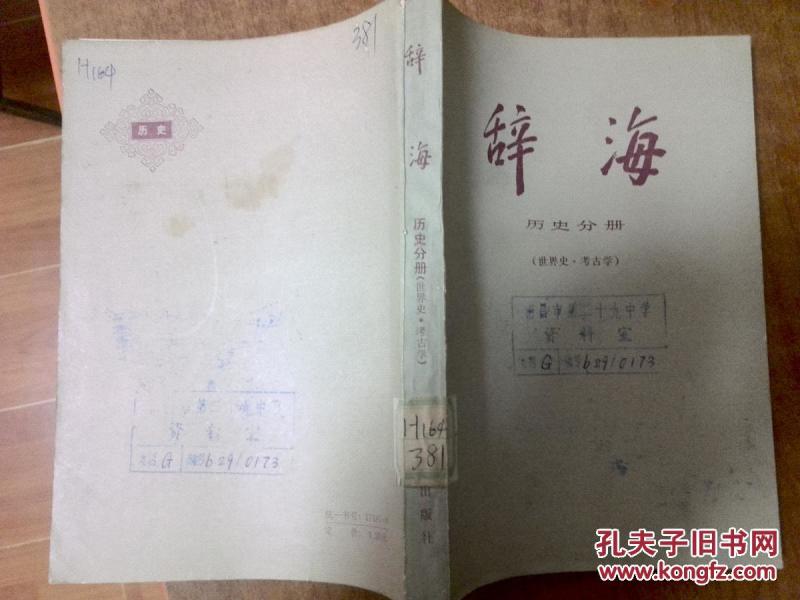 辞海
历史分册
(世界史·考古学)
第二十九中学
资料室
G
b29/0173
辞海
历史分册(世界史·考古学)
H164
381
出版社
381
H164
历史
第二
资料室
G
b29/0173
统一书号:
定价:
孔夫子旧书网
www.kongfz.com